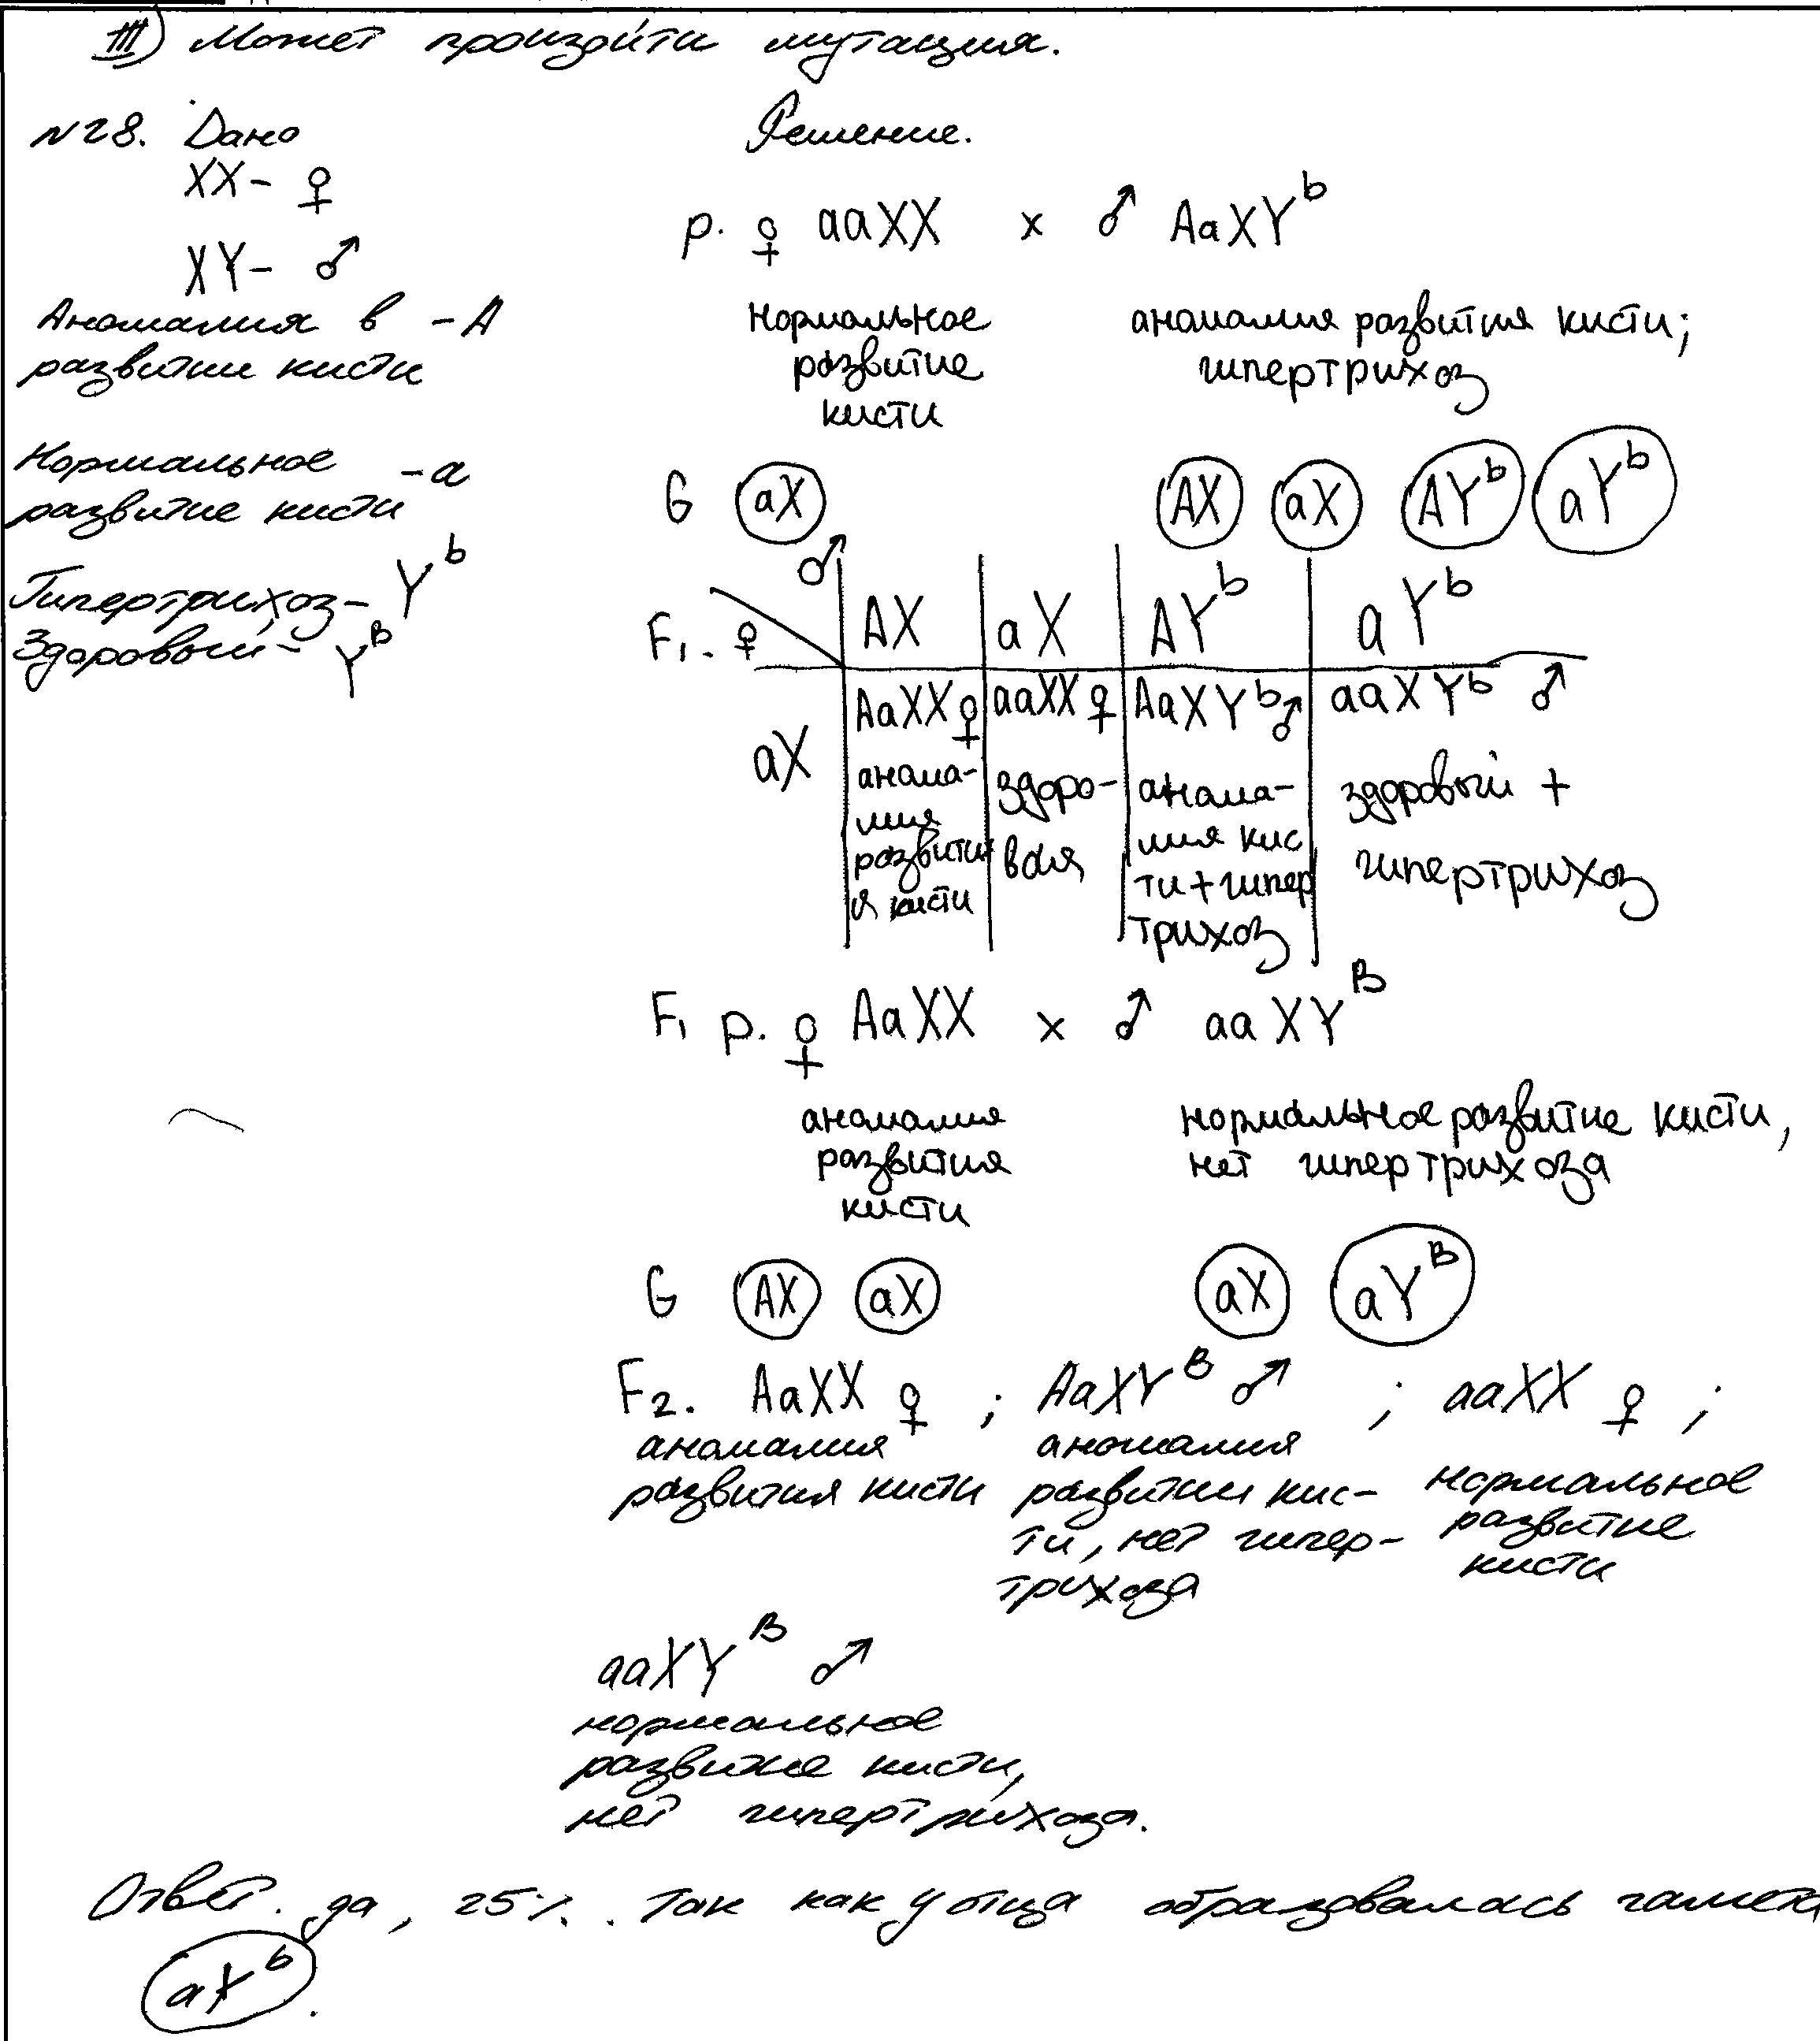 III) Может произойти мутация.
№28. Дано
Решение.
XX- ♀
XY- ♂
Аномалия в -A
развитии кисти
Нормальное -a
развитие кисти
Гипертрихоз- Y^b
Здоровый- Y^B
p. ♀ aaXX x ♂ AaXY^b
Нормальное
развитие
кисти
анамалия развития кисти;
гипертрихоз
G aX AX aX AY^b aY^b
♂
F1. ♀ AX aX AY^b aY^b
aX
AaXX♀ aaXX♀ AaXY^b♂ aaXY^b ♂
анама-
лия
развити
я кисти
здоро-
вая
анама-
лия кис
ти+гипер
трихоз
здоровый +
гипертрихоз
F1 p. ♀ AaXX x ♂ aaXY^B
аномалия
развития
кисти
нормальное развитие кисти,
нет гипертрихоза
G AX aX aX aY^B
F2. AaXX ♀ ; AaXY^B ♂ ; aaXX ♀ ;
аномалия
развития кисти
аномалия
развитии кис-
ти, нет гипер-
трихоза
нормальное
развитие
кисти
aaXY^B ♂
нормальное
развитие кисти,
нет гипертрихоза.
Ответ. да, 25%. Так как у отца образовалась гамета
aY^b.